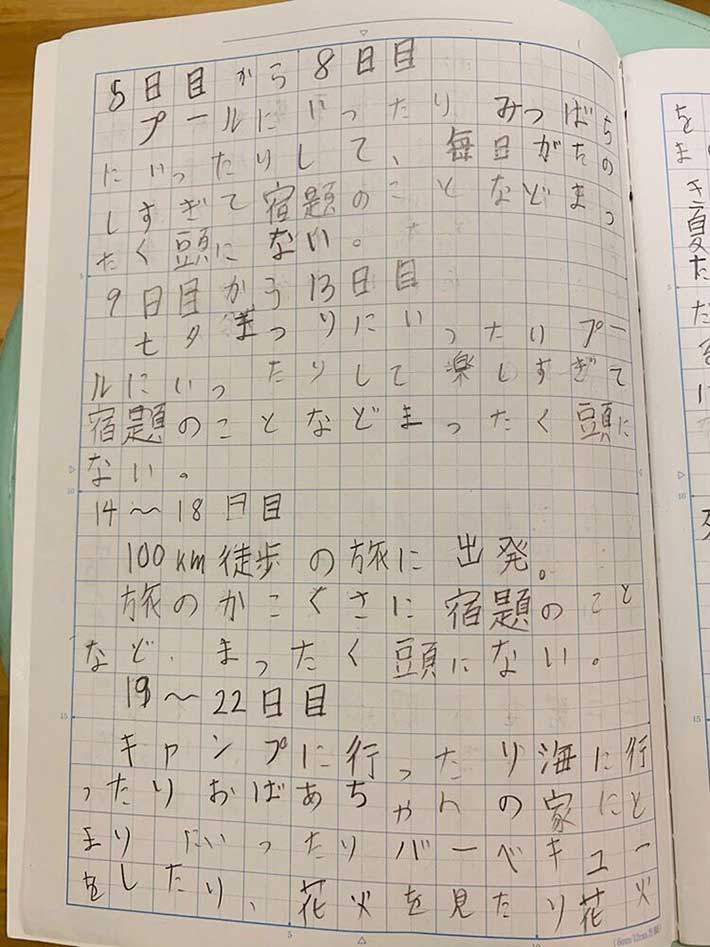 5日目から8日目
プールにいったり みつばち
にいったりして、毎日がたの
しすぎて宿題のことなどまっ
たく頭にない。
9日目から13日目
七夕まつりにいったりプー
ルにいったりして楽しすぎて
宿題のことなどまったく頭に
ない。
14〜18日目
100km徒歩の旅に出発。
旅のかこくさに宿題のこと
など、まったく頭にない。
19〜22日目
キャンプに行ったり海に行
ったりおばあちゃんの家にと
まりにいったりバーベキュー
をしたり、花火を見たり花火
を
ま
き
夏
た
だ